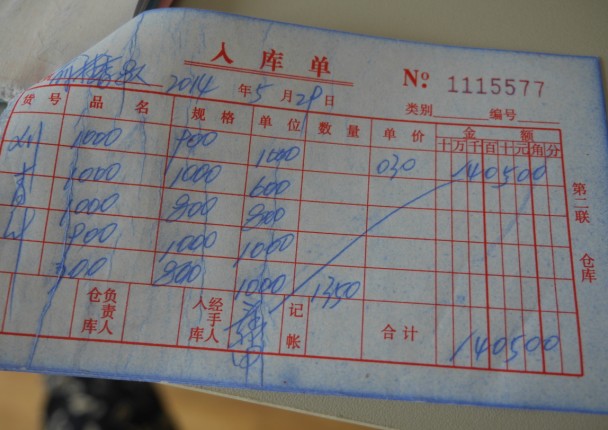 入库单
№ 1115577
2014年5月28日
类别 编号
货号 品名 规格 单位 数量 单价 金额
十万千百十元角分
1000 900 1000 030 140500
1000 1000 600
1000 800 800
900 1000 1000
300 800 1000 1350
仓库负责人 入库经手人 记帐 合计 140500
第二联 仓库